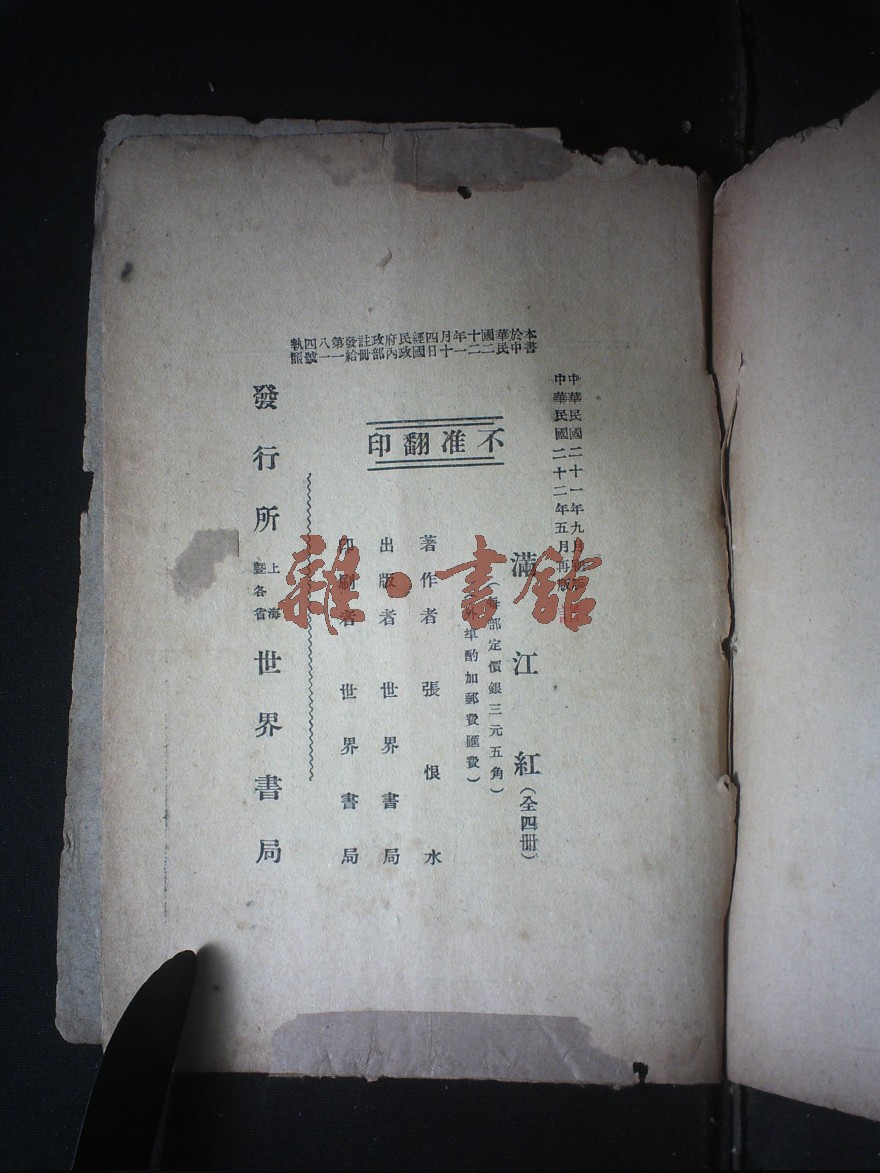 本書於中華民國二十二年一月十四日經國民政府內政部註冊發給第一八一四號執照
中華民國二十一年九月
中華民國二十二年五月再版
滿江紅（全四冊）
（每部定價銀三元五角）
（外埠酌加郵費匯費）
不准翻印
著作者 張恨水
出版者 世界書局
印刷者 世界書局
發行所 上海暨各省 世界書局
雜·書館